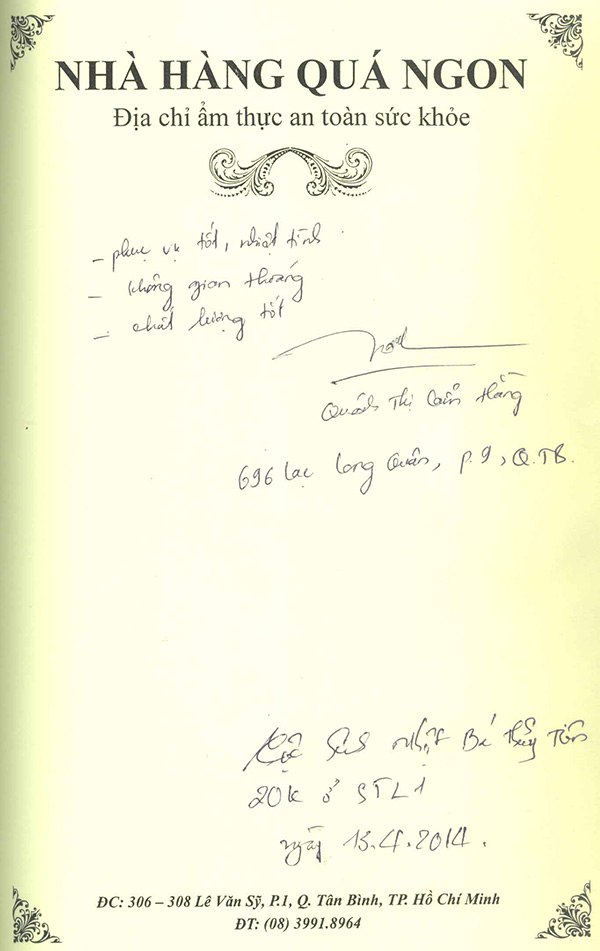 NHÀ HÀNG QUÁ NGON
Địa chỉ ẩm thực an toàn sức khỏe
- phục vụ tốt, nhiệt tình.
- không gian thoáng
- chất lượng tốt
Quách Thị Cẩm Hằng
696 Lạc Long Quân, P.9, Q.TB.
nhật Bé Thủy Tiên
20k ở STL1
ngày 13.4.2014.
ĐC: 306 – 308 Lê Văn Sỹ, P.1, Q. Tân Bình, TP. Hồ Chí Minh
ĐT: (08) 3991.8964